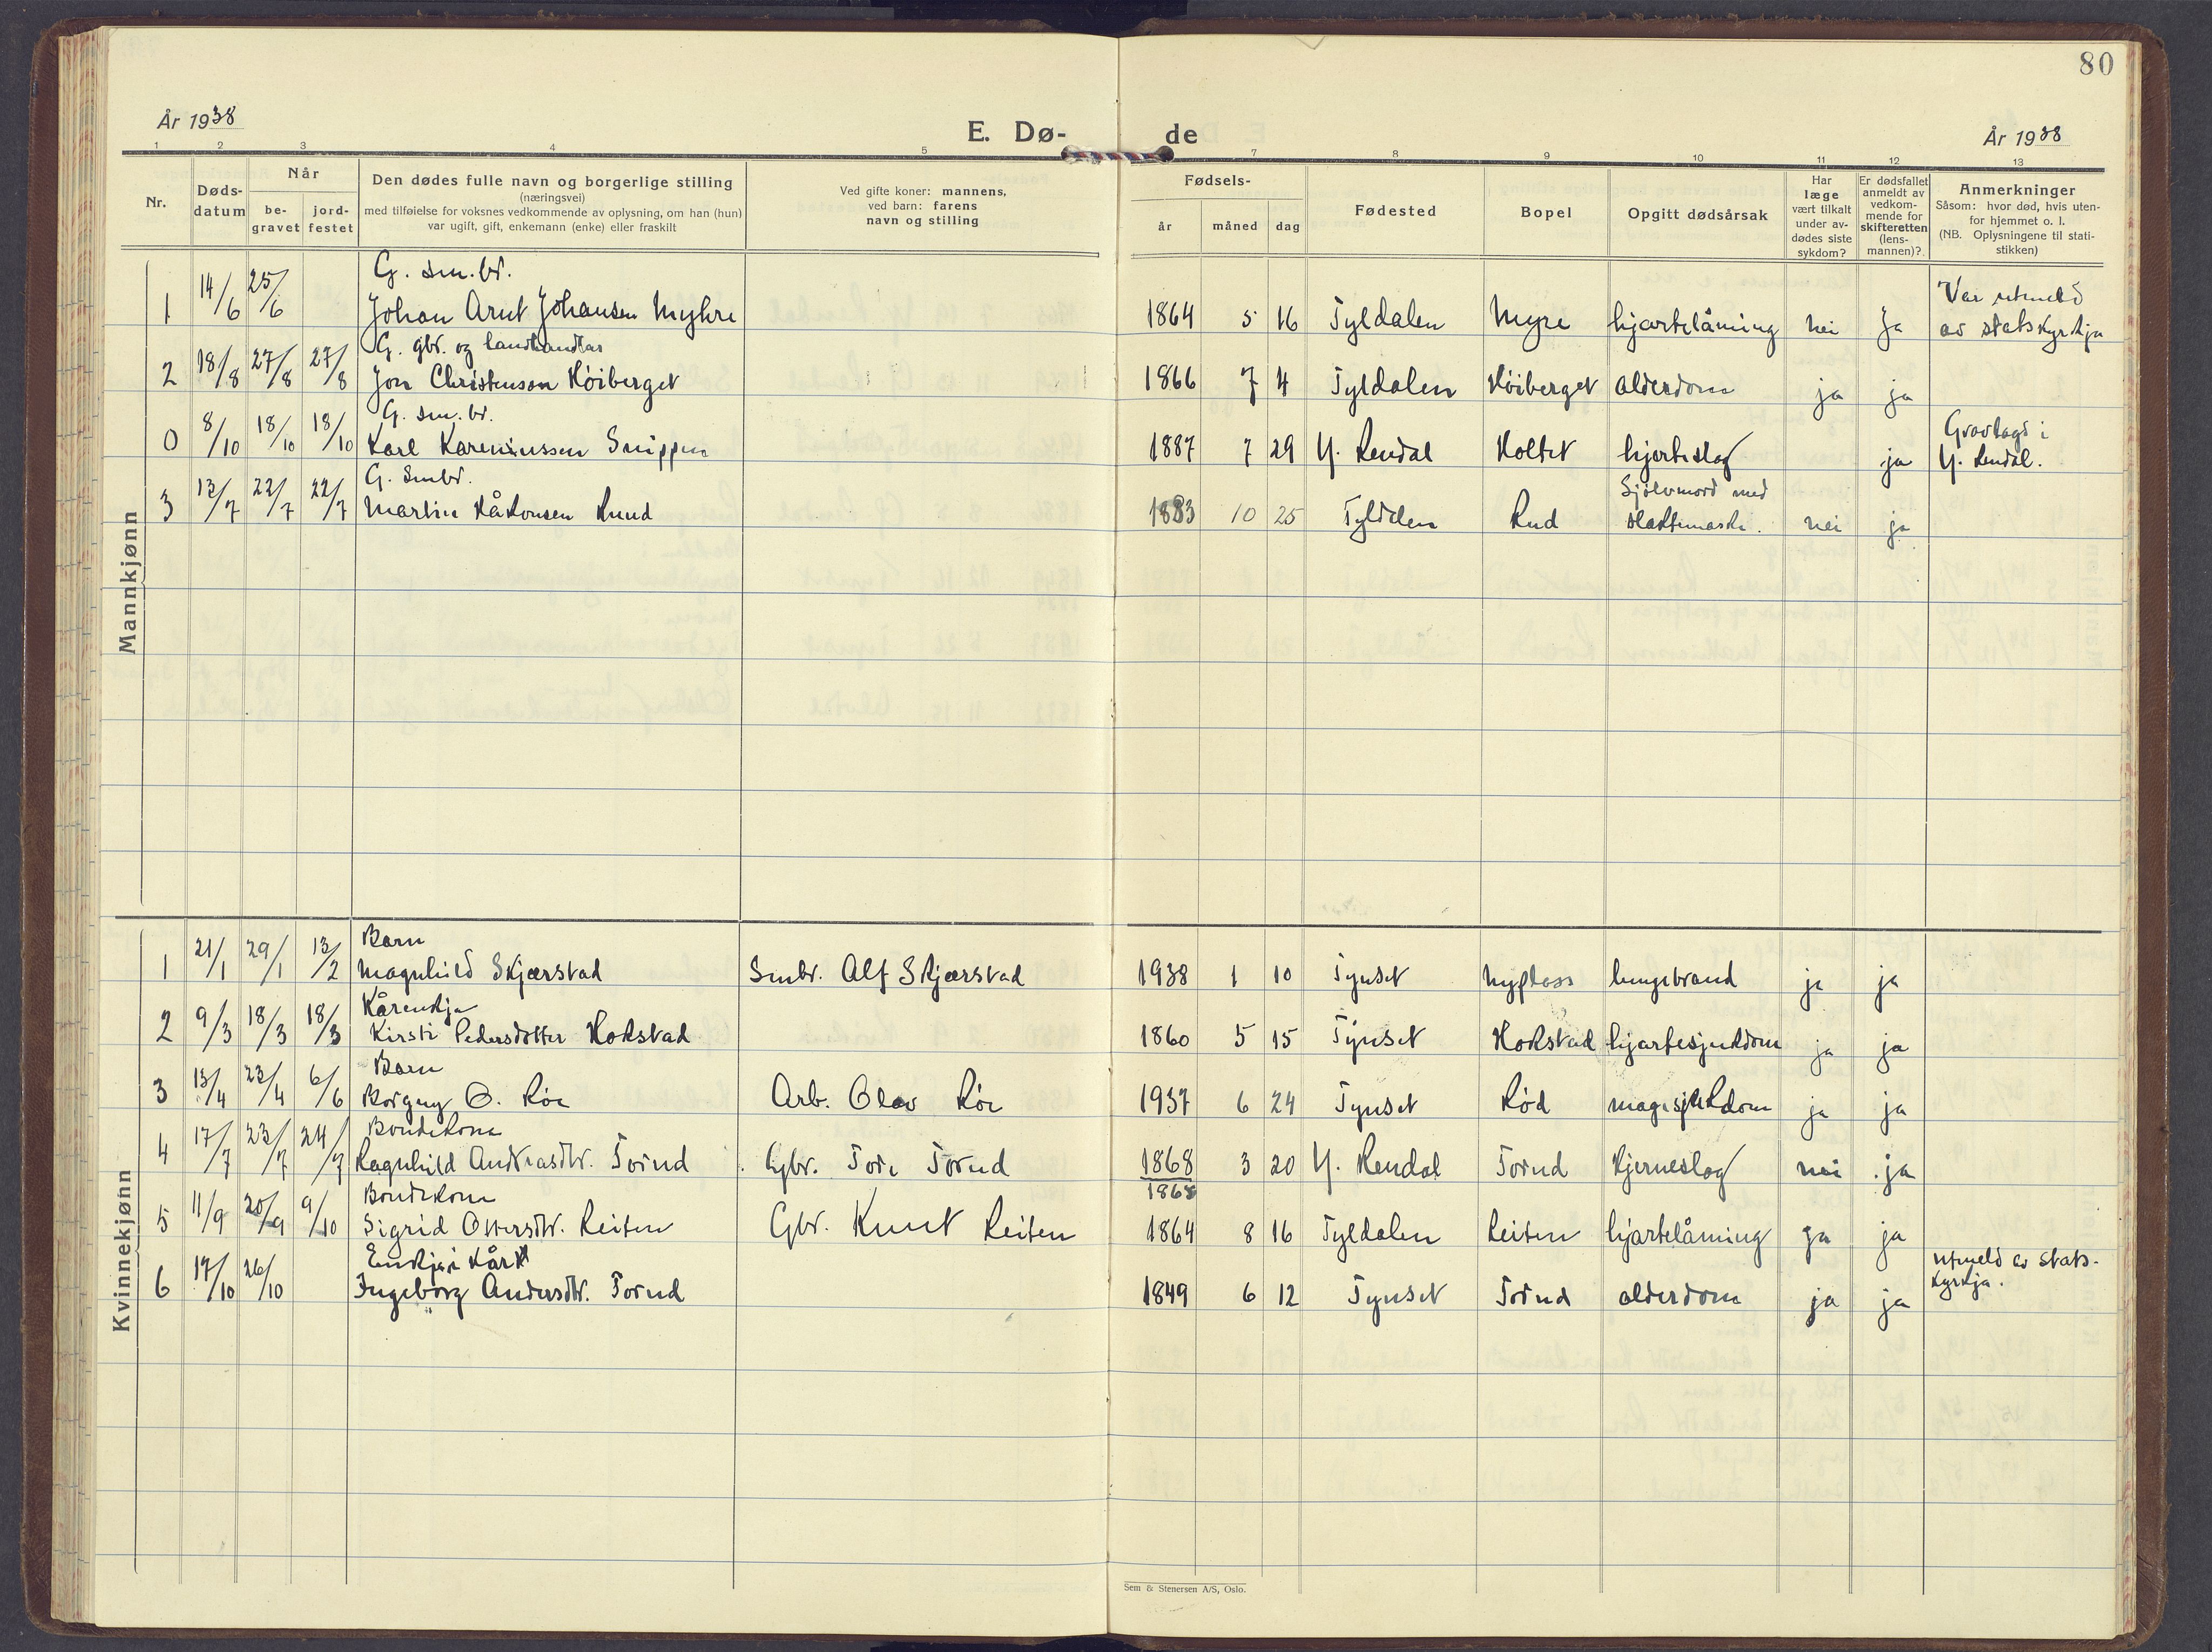 80
År 1938
E. Dø-
de
År 1938
1 2 3 4 5 7 8 9 10 11 12 13
Nr.
Døds-
datum
Når
be-
gravet
jord-
festet
Den dødes fulle navn og borgerlige stilling
(næringsvei)
med tilføielse for voksnes vedkommende av oplysning, om han (hun)
var ugift, gift, enkemann (enke) eller fraskilt
Ved gifte koner: mannens,
ved barn: farens
navn og stilling
Fødsels-
år måned dag
Fødested
Bopel
Opgitt dødsårsak
Har
læge
vært tilkalt
under av-
dødes siste
sykdom?
Er dødsfallet
anmeldt av
vedkom-
mende for
skifteretten
(lens-
mannen)?
Anmerkninger
Såsom: hvor død, hvis uten-
for hjemmet o. l.
(NB. Oplysningene til stati-
stikken)
Mannkjønn
G. sm.br.
1 14/6 25/6 Johan Arnt Johansen Myhre 1864 5 16 Tyldalen Myre hjartelåming nei Ja
Var utmeld
av statskyrkja
G. gbr. og landhandlar
2 18/8 27/8 27/8 Jon Christenson Høiberget 1866 7 4 Tyldalen Høiberget alderdom ja ja
G. sm.br.
0 8/10 18/10 18/10 Karl Kareniussen Snippen 1887 7 29 Y. Rendal Holtet hjerteslag ja
Gravlagd i
Y. Rendal.
G. Smbr.
3 13/7 22/7 22/7 Martin Håkonsen Ruud 1883 10 25 Tyldalen Rud
Sjølvmord med
slaktemaski. nei ja
Kvinnekjønn
Barn
1 21/1 29/1 13/2 Magnhild Skjærstad Smbr. Alf Skjærstad 1938 1 10 Tynset Nyplass lungebrand ja ja
Kårenkja
2 9/3 18/3 18/3 Kirsti Pedersdotter Hokstad 1860 5 15 Tynset Hokstad hjartesjukdom ja ja
Barn
3 13/4 23/4 6/6 Borgny O. Røe Arb. Olav Røe 1937 6 24 Tynset Rød magesjukdom ja ja
Bondekona
4 17/7 23/7 24/7 Ragnhild Andreasdtr. Torud Gbr. Tore Torud 1868 3 20 Y. Rendal Torud hjerneslag nei ja
1868
Bondekona
5 11/9 20/9 9/10 Sigrid Ottersdtr. Reiten Gbr. Knut Reiten 1864 8 16 Tyldalen Reiten hjartelåming ja ja
Enkja i kår
6 17/10 26/10 Ingeborg Andersdtr. Torud 1849 6 12 Tynset Torud alderdom ja ja
utmeld av stats-
kyrkja.
Sem & Stenersen A/S, Oslo.